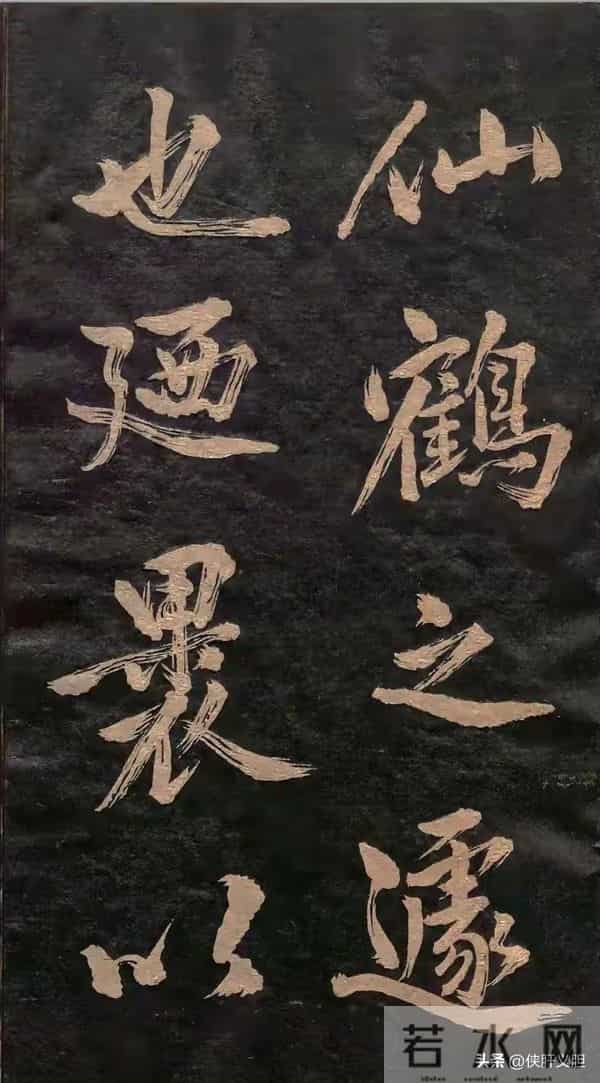 仙鶴之遽
也廼裹以
若水网
头条 @侠肝义胆